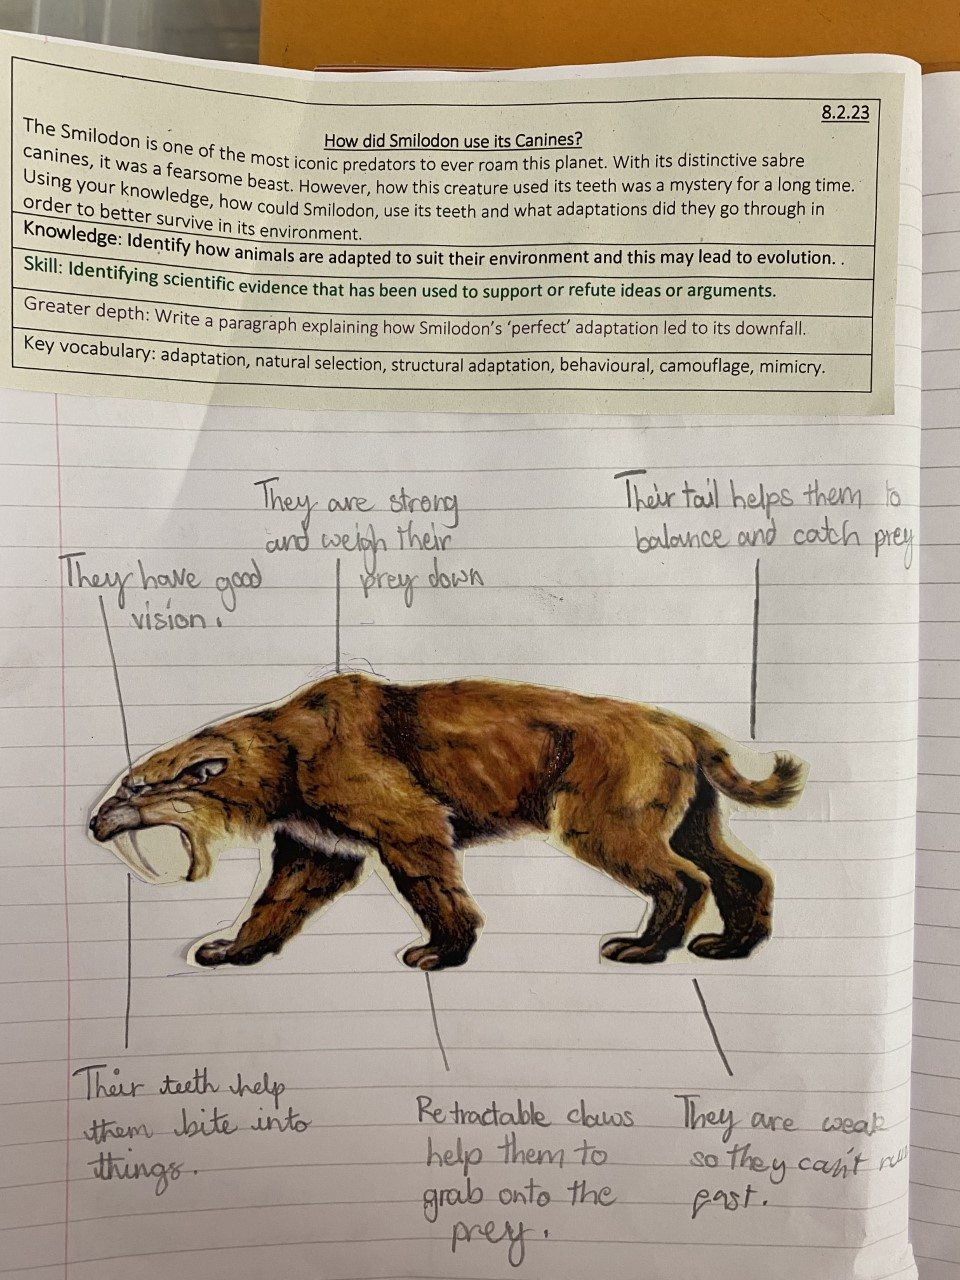 8.2.23
How did Smilodon use its Canines?
The Smilodon is one of the most iconic predators to ever roam this planet. With its distinctive sabre
canines, it was a fearsome beast. However, how this creature used its teeth was a mystery for a long time.
Using your knowledge, how could Smilodon, use its teeth and what adaptations did they go through in
order to better survive in its environment.
Knowledge: Identify how animals are adapted to suit their environment and this may lead to evolution. .
Skill: Identifying scientific evidence that has been used to support or refute ideas or arguments.
Greater depth: Write a paragraph explaining how Smilodon's 'perfect' adaptation led to its downfall.
Key vocabulary: adaptation, natural selection, structural adaptation, behavioural, camouflage, mimicry.
They are strong
and weigh their
prey down
Their tail helps them to
balance and catch prey
They have good
vision.
Their teeth help
them bite into
things.
Retractable claws
help them to
grab onto the
prey.
They are weak
so they can't run
fast.